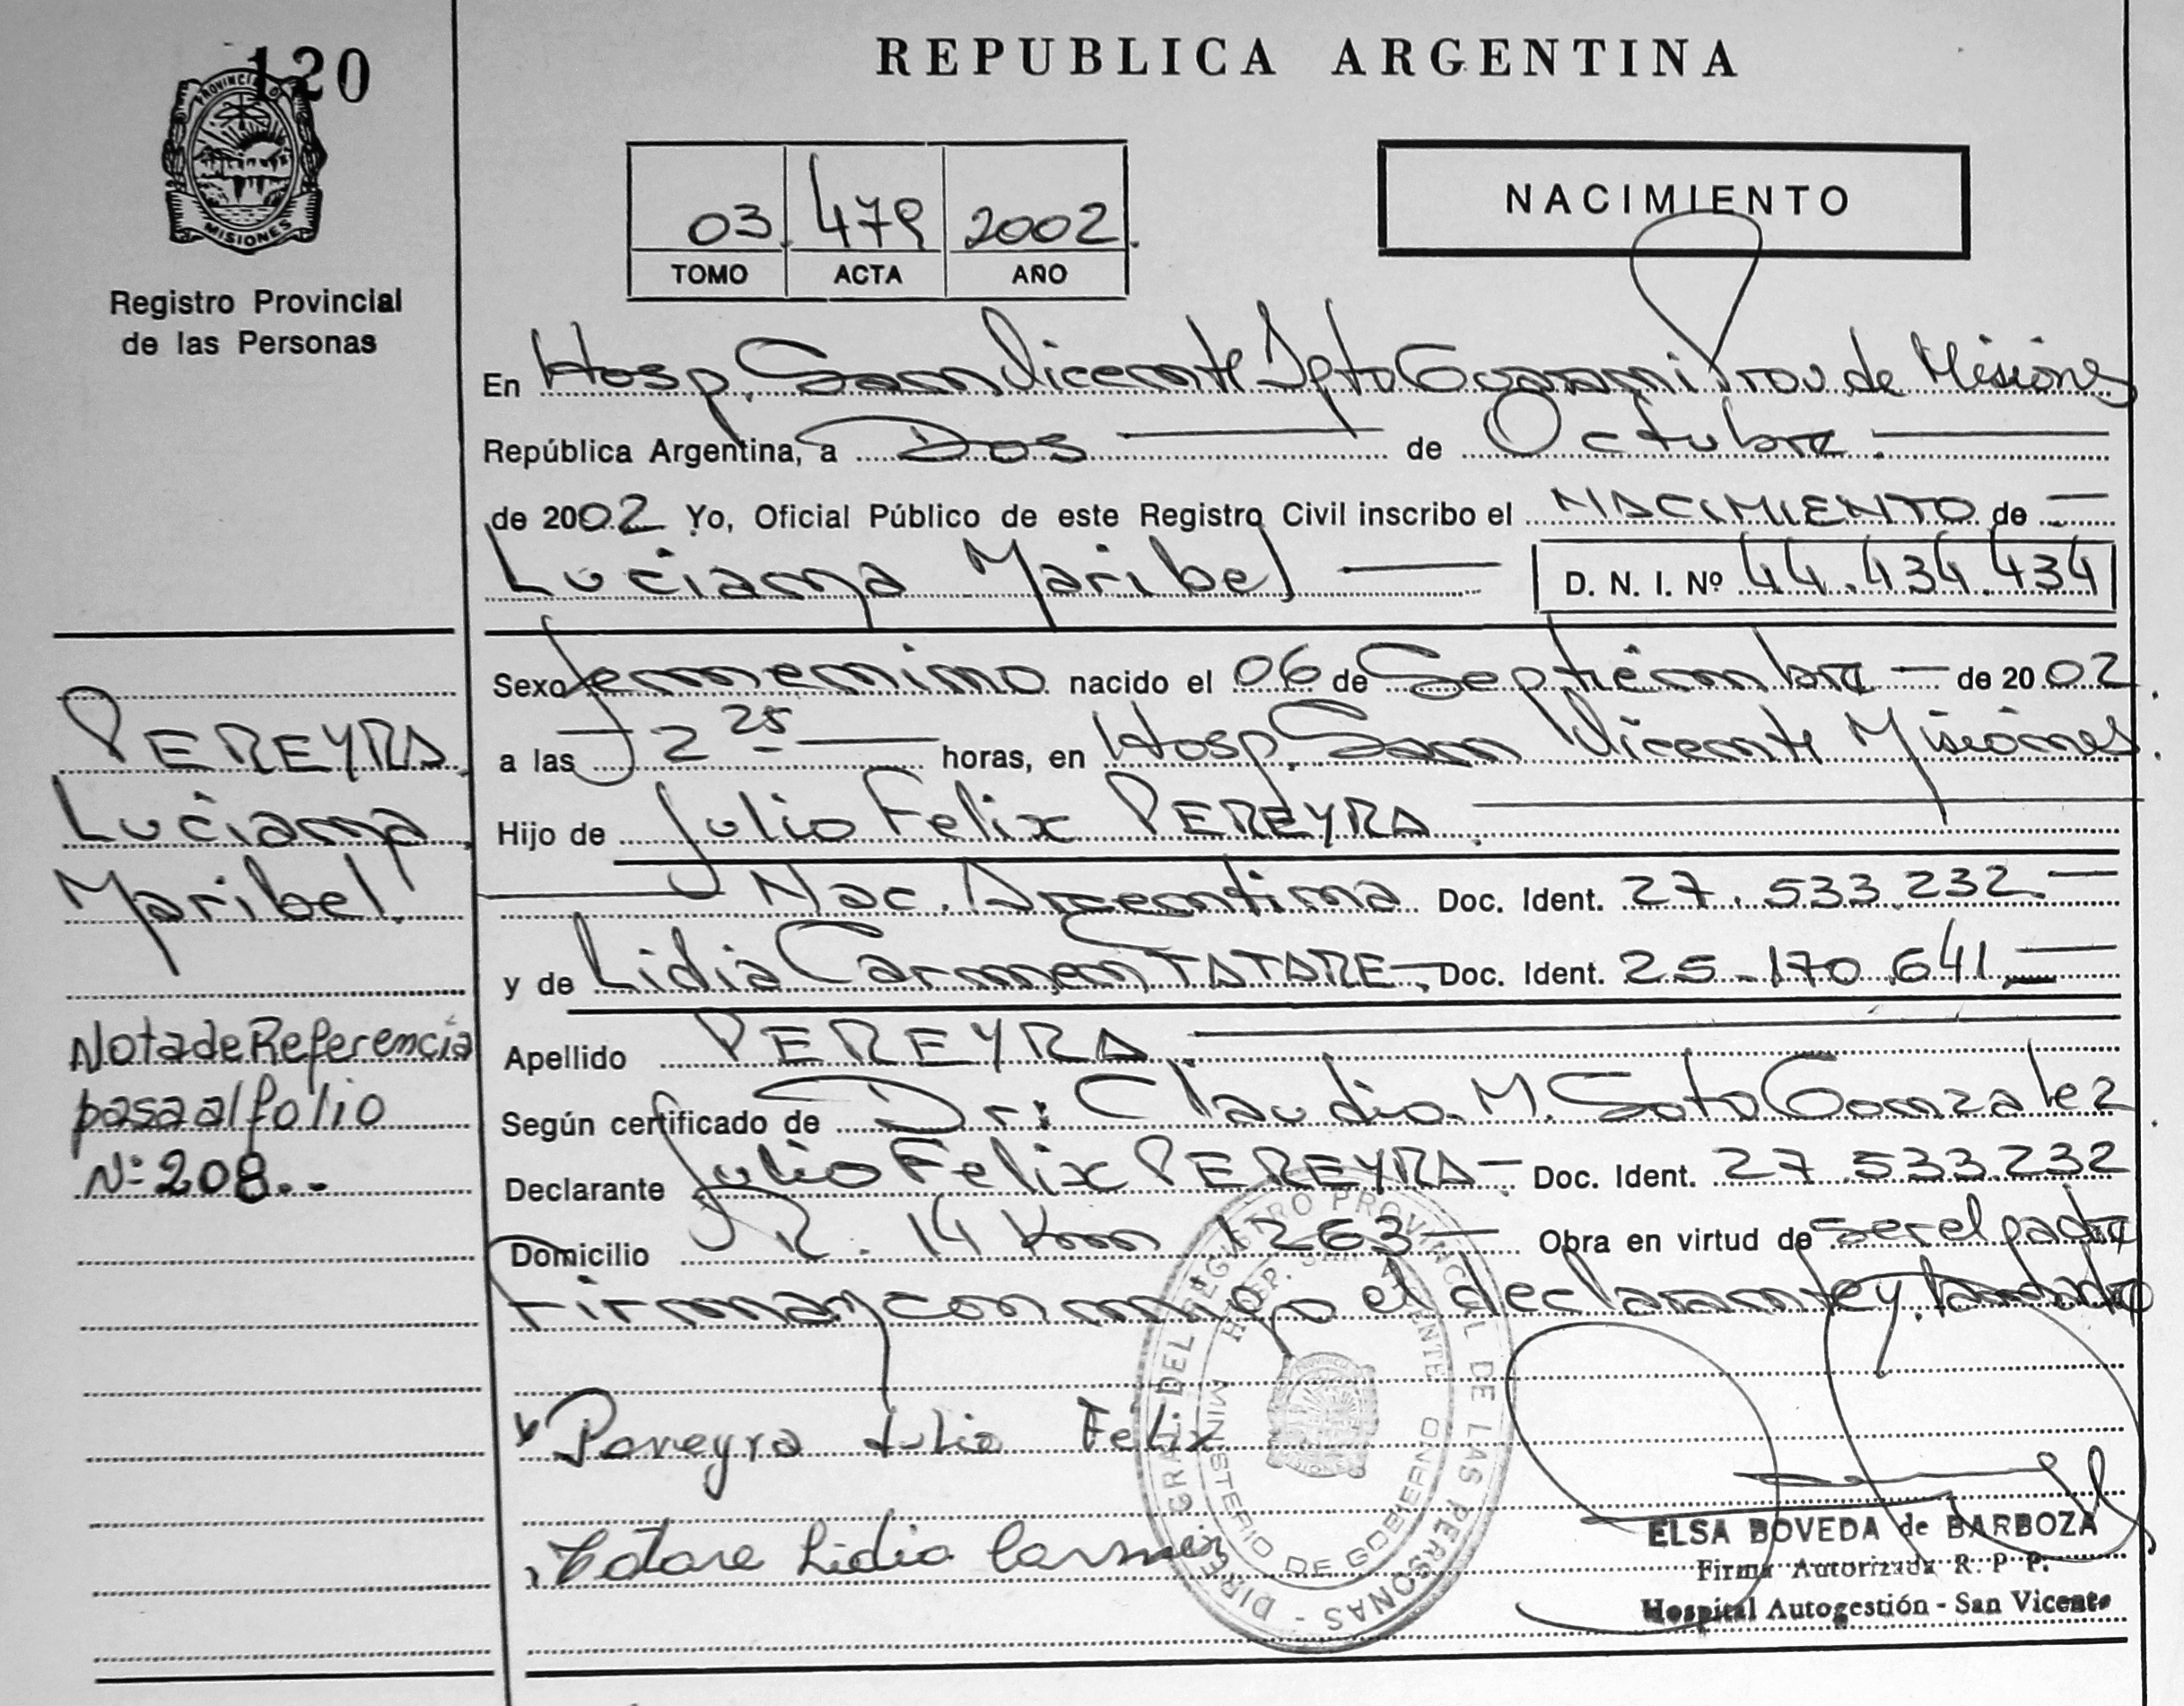 120
PROVINCIA DE
MISIONES
Registro Provincial
de las Personas
REPUBLICA ARGENTINA
03. 479 2002.
TOMO ACTA AÑO
NACIMIENTO
En Hosp. San Vicente Dpto Guarani Prov de Misiones
República Argentina, a Dos de Octubre.
de 2002 Yo, Oficial Público de este Registro Civil inscribo el NACIMIENTO de
Luciana Maribel D. N. I. Nº 44.434.434
Sexo femenino nacido el 06 de Septiembre de 2002.
a las 12 25 horas, en Hosp. San Vicente Misiones.
Hijo de Julio Felix PEREYRA.
Nac. Argentina Doc. Ident. 27.533.232.
y de Lidia Carmen TATARE. Doc. Ident. 25.170.641.
Apellido PEREYRA.
Según certificado de Dr: Claudio M. Soto Gonzalez.
Declarante Julio Felix PEREYRA. Doc. Ident. 27.533.232
Domicilio R. 14 Km 1263 Obra en virtud de ser el padre
Firman conmigo el declarante y
PEREYRA.
Luciana
Maribel.
Nota de Referencia
pasa al folio
Nº 208..
Pereyra Julio Felix
Tatare Lidia Carmen
DIREC. GRAL. DEL REGISTRO PROVINCIAL DE LAS PERSONAS
HOSP. SAN VICENTE
MINISTERIO DE GOBIERNO
ELSA BOVEDA de BARBOZA
Firma Autorizada R. P. P.
Hospital Autogestión - San Vicente